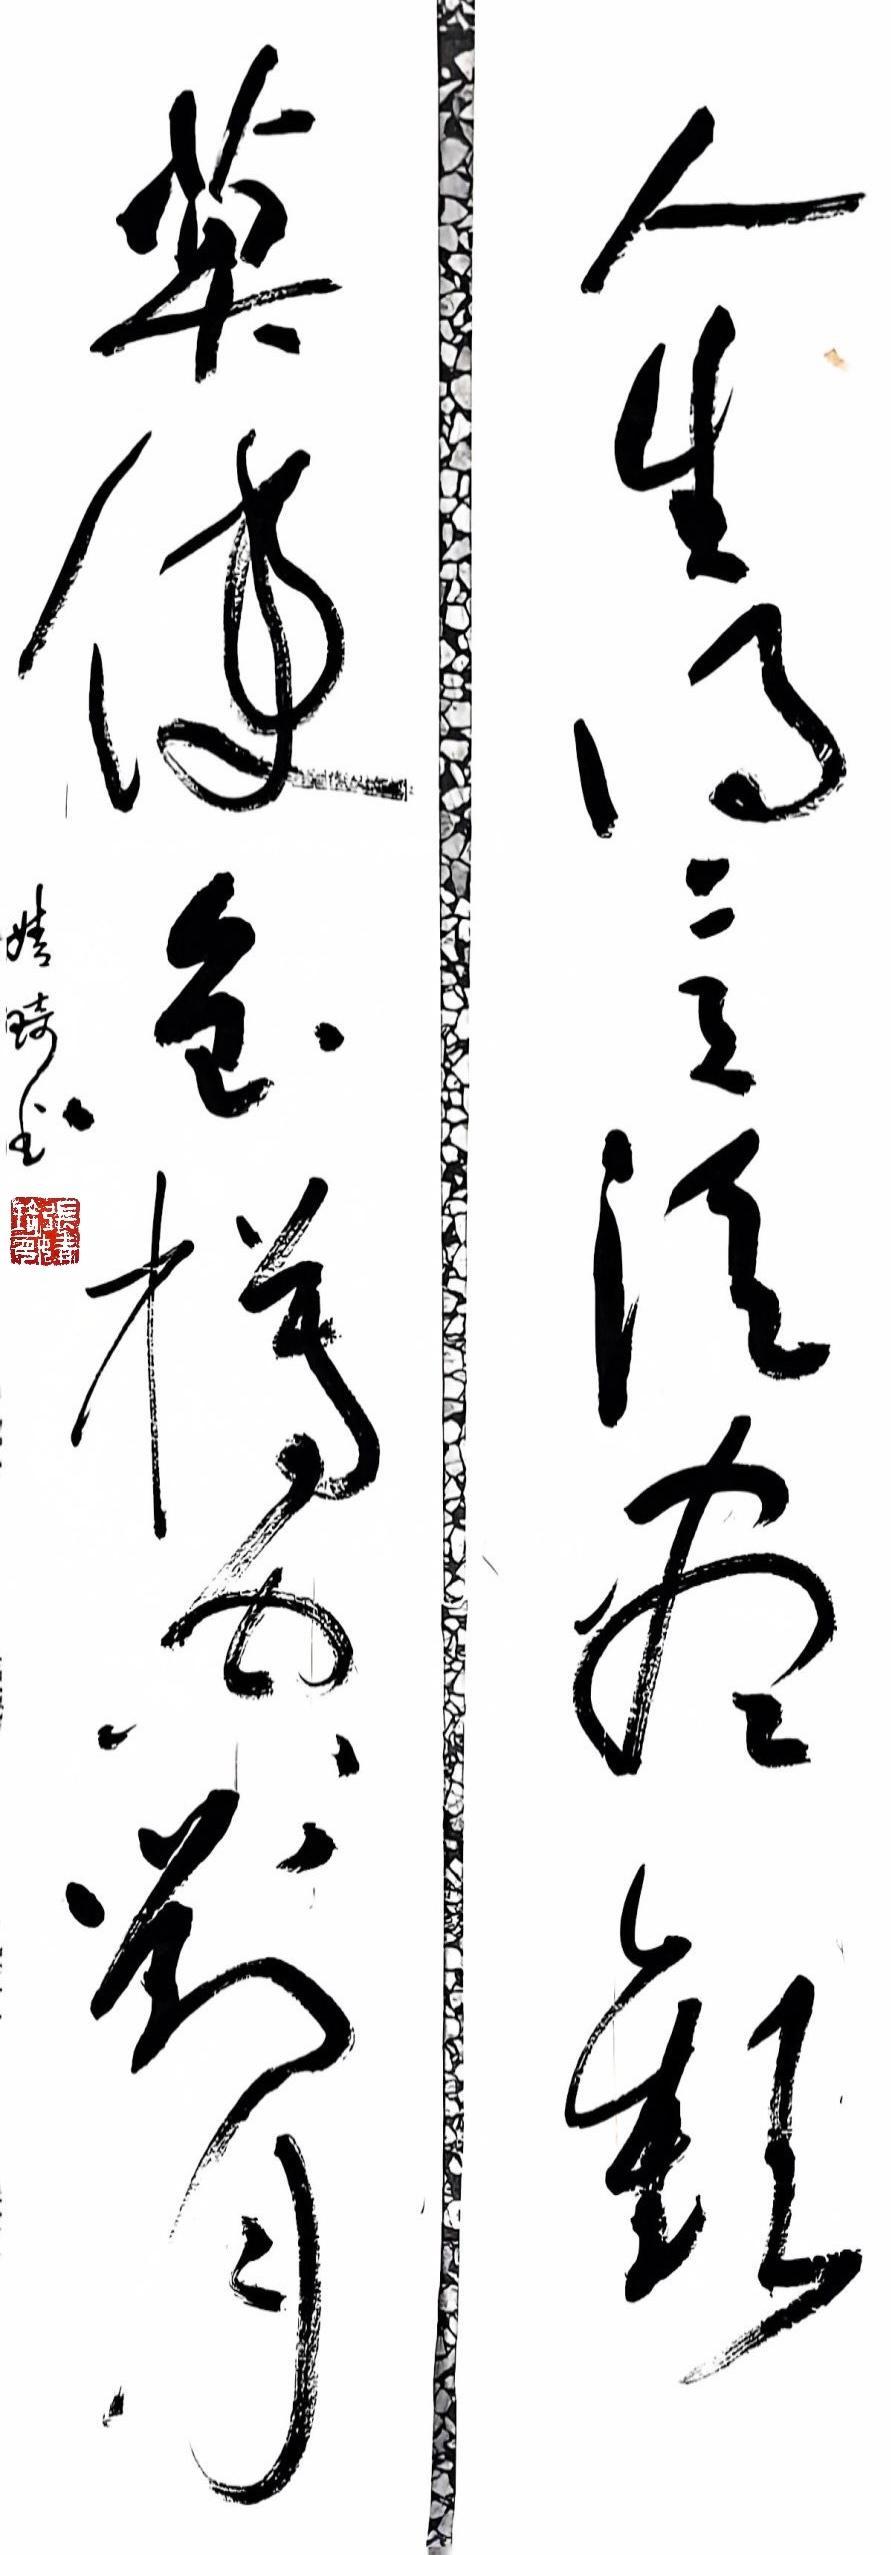 人生得意須盡歡
莫使金樽空對月
婧琦书